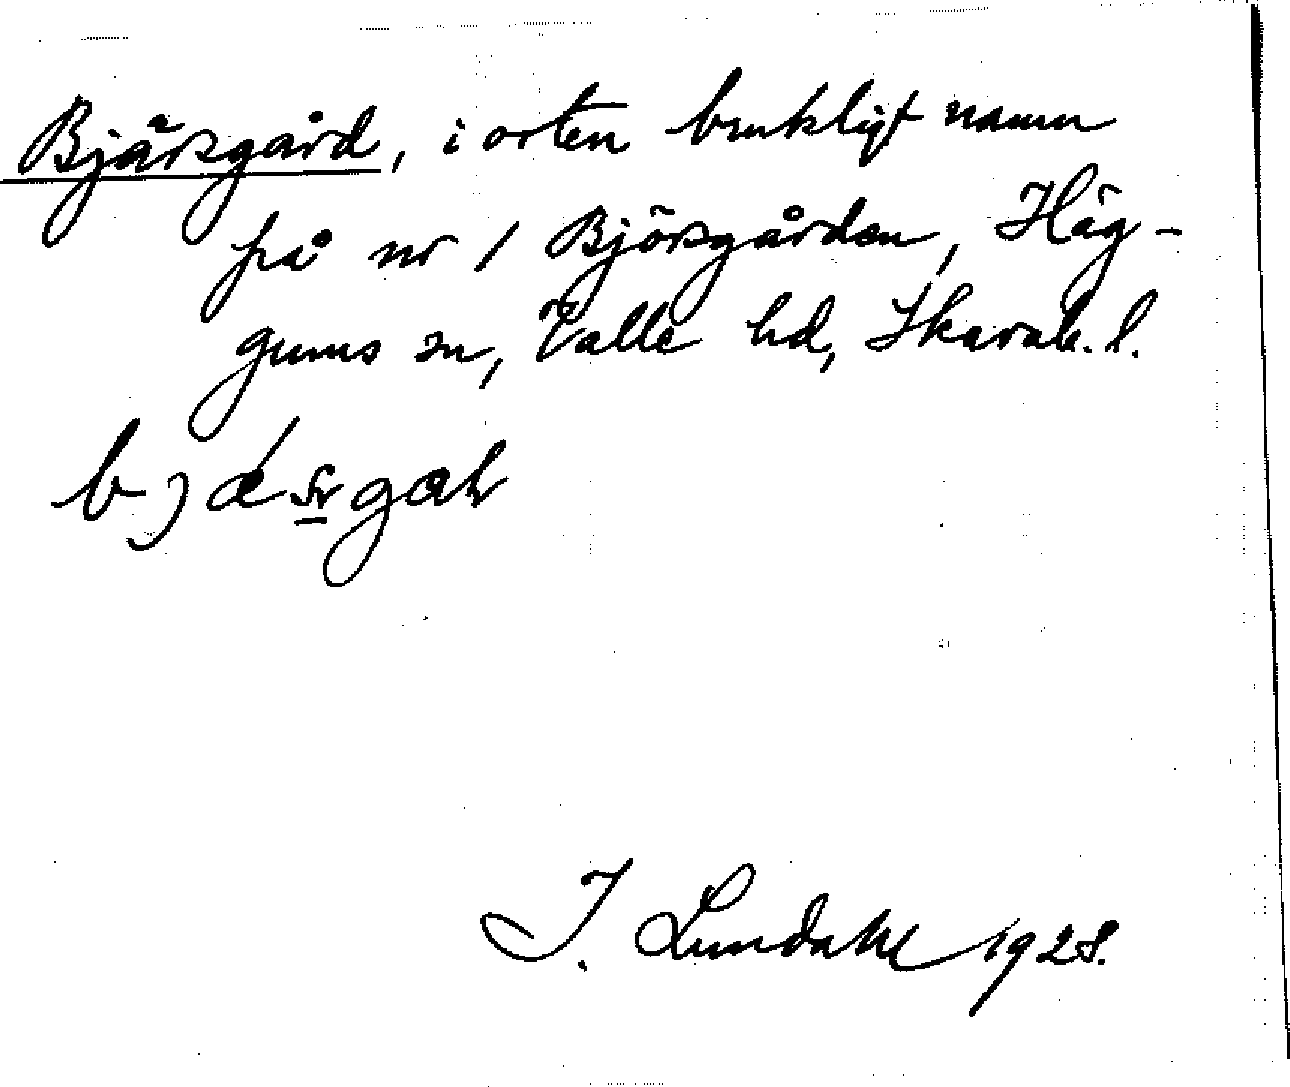 Bjärsgård, i orten brukligt namn
på nr 1 Björsgården, Häg-
gums sn, Valle hd, Skarab. l.
J. Lundahl 1928.